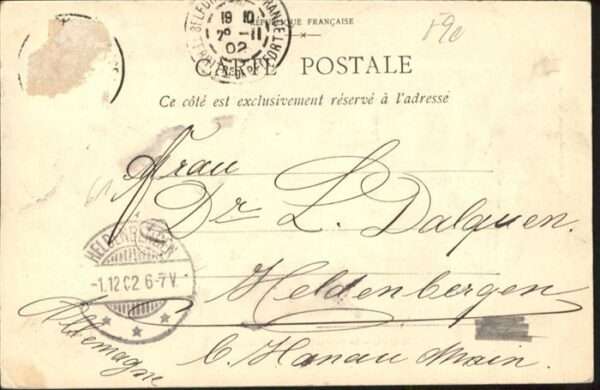 RÉPUBLIQUE FRANÇAISE
19 10
02
CARTE POSTALE
Ce côté est exclusivement réservé à l'adresse
Frau
Dr L. Dalquen.
HELDENBERGEN
-1.12.02 6-7V.
Heldenbergen
Allemagne
b. Hanau Main.